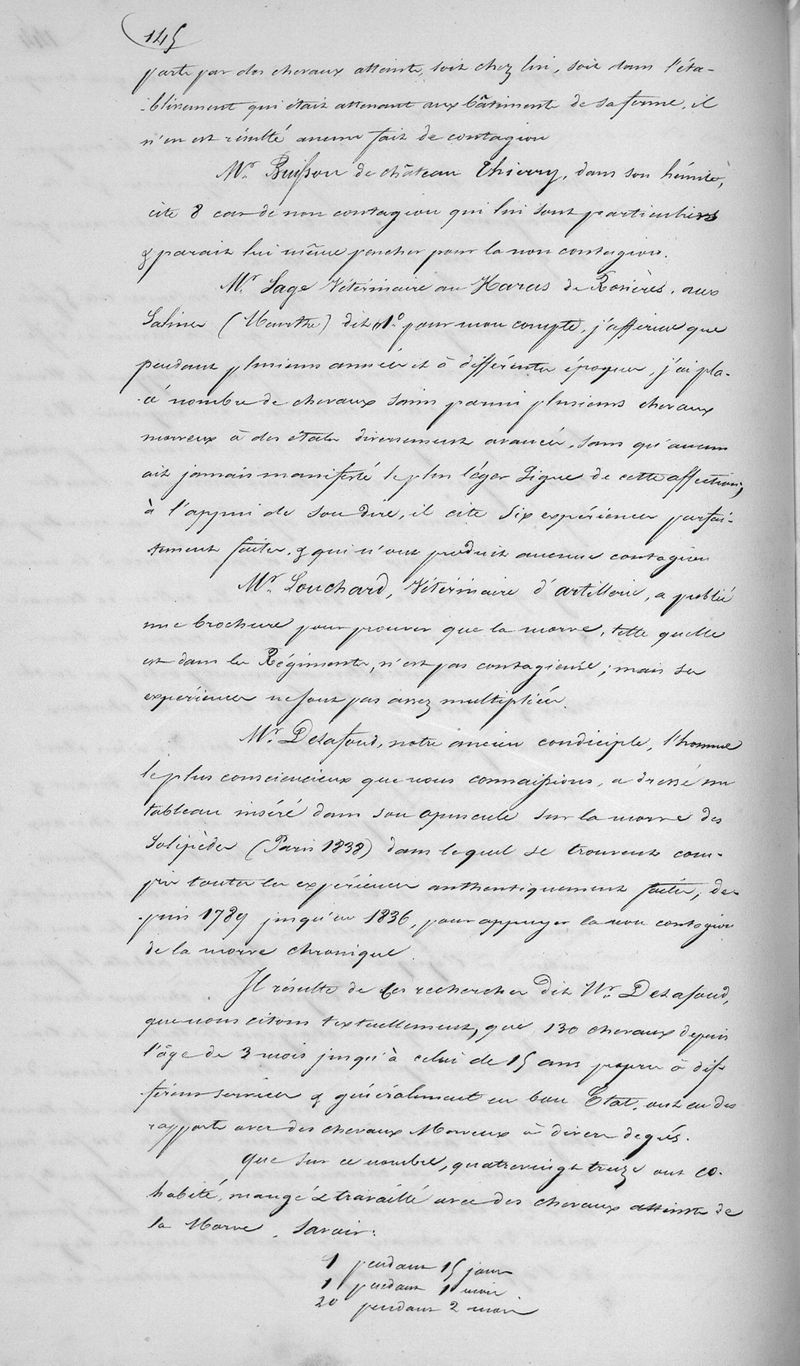 145
porte par des chevaux atteints, soit chez lui, soit dans l'éta-
-blissement qui était attenant aux bâtiments de sa ferme, il
n'en est résulté aucun fait de contagion
Mr. Buisson de château Thierry, dans son
cite 8 cas de non contagion qui lui sont particuliers
& parait lui même pencher pour la non contagion.
Mr. Sage Vétérinaire au Haras de Rosières, aux
Salines (Meurthe) dit 1º pour mon compte, j'affirme que
pendant plusieurs années et à différentes époques, j'ai pla-
-cé nombre de chevaux sains parmi plusieurs chevaux
morveux à des états diversement avancés, sans qu'aucun
ait jamais manifesté le plus léger Signe de cette affection;
à l'appui de son dire, il cite six expériences parfai-
tement faites, & qui n'ont produit aucune contagion
Mr. Louchard, Vétérinaire d'artillerie, a publié
une brochure pour prouver que la morve, telle quelle
est dans les Régiments, n'est pas contagieuse; mais ses
expériences ne sont pas assez multipliées.
Mr. Delafond, notre ancien condiciple, l'homme
le plus consciencieux que nous connaissions, a dressé un
tableau inséré dans son opuscule sur la morve des
Solipèdes (Paris 1838) dans lequel se trouvent com-
pris toutes les expériences authentiquement faites, de-
-puis 1789 jusqu'en 1836, pour appuyer la non contagion
de la morve chronique.
Il résulte de ces recherches dit Mr. Delafond,
que nous citons textuellement, que 130 chevaux depuis
l'âge de 3 mois jusqu'à celui de 15 ans propres à dif-
férens services & généralement en bon Etat, ont eu des
rapports avec des chevaux Morveux à divers degrés.
Que sur ce nombre, quatrevingt treize ont co-
habité, mangé & travaillé avec des chevaux atteints de
la Morve, Savoir:
1 pendant 15 jours
1 pendant 1 mois
20 pendant 2 mois